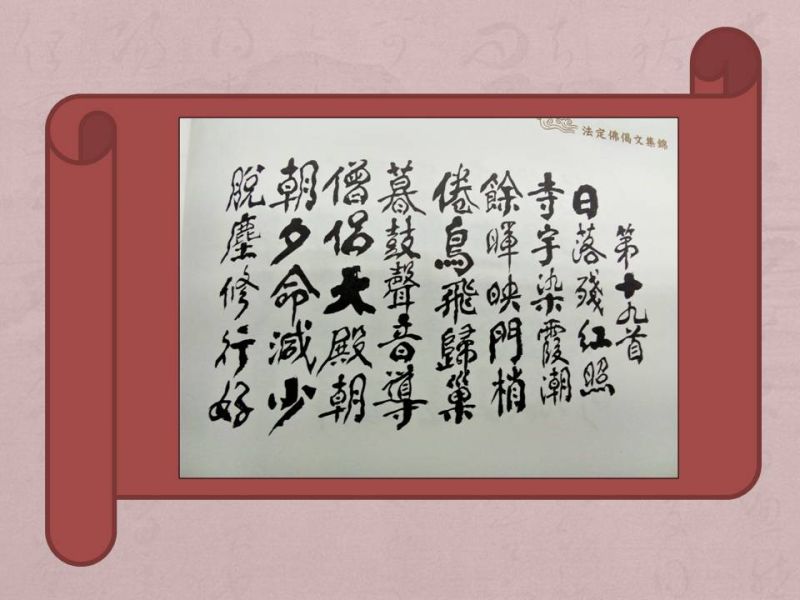 法定佛偈文集錦
第十九首
日落殘紅照
寺宇染霞潮
餘暉映門梢
倦鳥飛歸巢
暮鼓聲音導
僧侶大殿朝
朝夕命減少
脫塵修行好